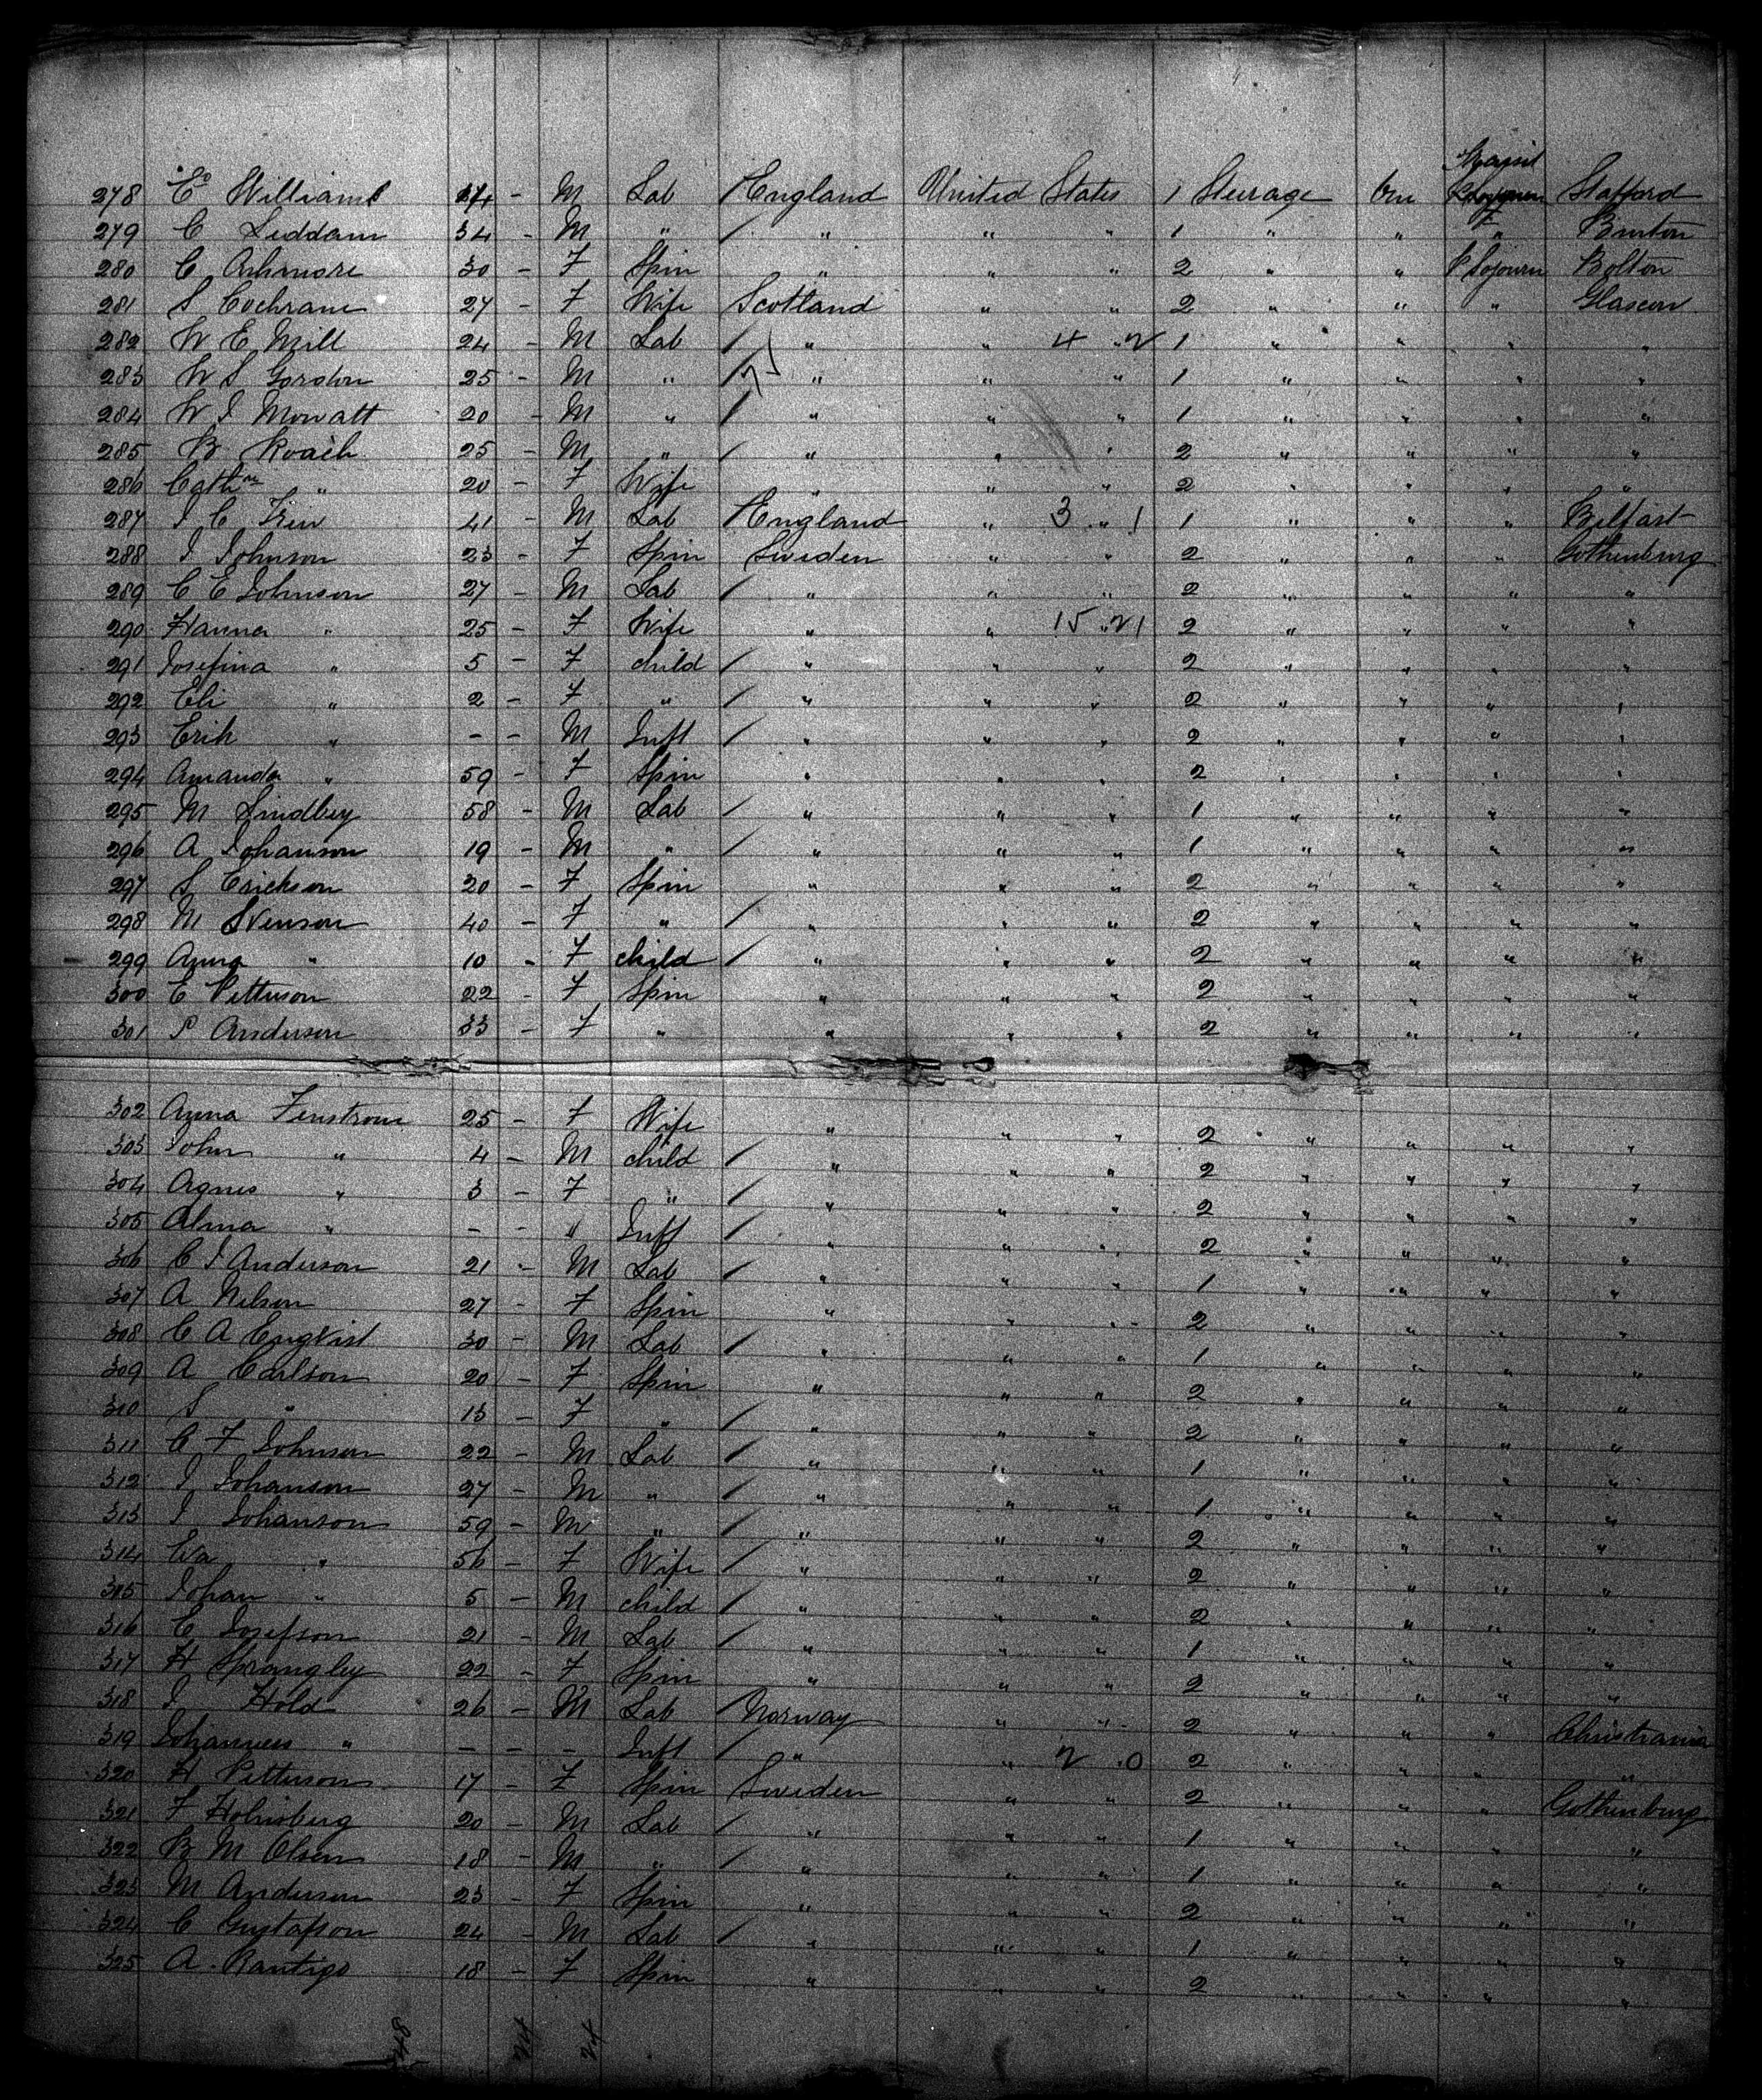 Transit
278 Eº Williams 44 - M Lab / England United States 1 Steerage One Stafford
279 C Leddam 34 - M " / " " " 1 " " " Burton
280 C Ashmore 30 - F Spin " " " 2 " " P Sojourn Bolton
281 S Cochrane 27 - F Wife Scotland " " 2 " " " Glascow
282 W E Mill 24 - M Lab / " " 4 " 2 1 " " " "
283 W S Gordon 25 - M " / " " " 1 " " " "
284 W I Mowatt 20 - M " / " " " 1 " " " "
285 B Roach 25 - M " / " " " 2 " " " "
286 Cathne " 20 - F Wife " " " 2 " " " "
287 I C Frew 41 - M Lab / England " 3 " 1 1 " " " Belfast
288 I Johnson 23 - F Spin Sweden " " 2 " " " Gothenburg
289 C E Johnson 27 - M Lab / " " " 2 " " " "
290 Hanna " 25 - F Wife " " 15 " 21 2 " " " "
291 Josefina " 5 - F child / " " " 2 " " " "
292 Eli " 2 - F " / " " " 2 " " " "
293 Erik " - - M Inft / " " " 2 " " " "
294 Amanda " 59 - F Spin " " " 2 " " " "
295 M Lindbey 58 - M Lab / " " " 1 " " " "
296 A Johanson 19 - M " / " " " 1 " " " "
297 S Erickson 20 - F Spin " " " 2 " " " "
298 M Svenson 40 - F " / " " " 2 " " " "
299 Anna " 10 - F child / " " " 2 " " " "
300 E Petterson 22 - F Spin " " " 2 " " " "
301 P Anderson 33 - F " " " " 2 " " " "
302 Anna Fenstrom 25 - F Wife " " " 2 " " " "
303 John " 4 - M child / " " " 2 " " " "
304 Agnes " 3 - F " / " " " 2 " " " "
305 Alma " - - " Inft / " " " 2 " " " "
306 C I Anderson 21 - M Lab / " " " 1 " " " "
307 A Nelson 27 - F Spin " " " 2 " " " "
308 C A Engkvist 30 - M Lab / " " " 1 " " " "
309 A Carlson 20 - F Spin " " " 2 " " " "
310 S " 13 - F " / " " " 2 " " " "
311 C F Johnson 22 - M Lab / " " " 1 " " " "
312 I Johanson 27 - M " / " " " 1 " " " "
313 I Johanson 59 - M " / " " " 2 " " " "
314 Eva " 56 - F Wife / " " " 2 " " " "
315 Johan " 5 - M child / " " " 2 " " " "
316 C Josefson 21 - M Lab / " " " 1 " " " "
317 H Sprangley 22 - F Spin " " " 2 " " " "
318 I Hold 26 - M Lab / Norway " " 2 " " " Christiania
319 Johannes " - - - Inft / " " 2 " 0 2 " " " "
320 H Petterson 17 - F Spin Sweden " " 2 " " " Gothenburg
321 F Holmberg 20 - M Lab / " " " 1 " " " "
322 B M Olsen 18 - M " / " " " 1 " " " "
323 M Anderson 23 - F Spin " " " 2 " " " "
324 C Gustafson 24 - M Lab / " " " 1 " " " "
325 A. Rantigo 18 - F Spin " " " 2 " " " "
48 24 24